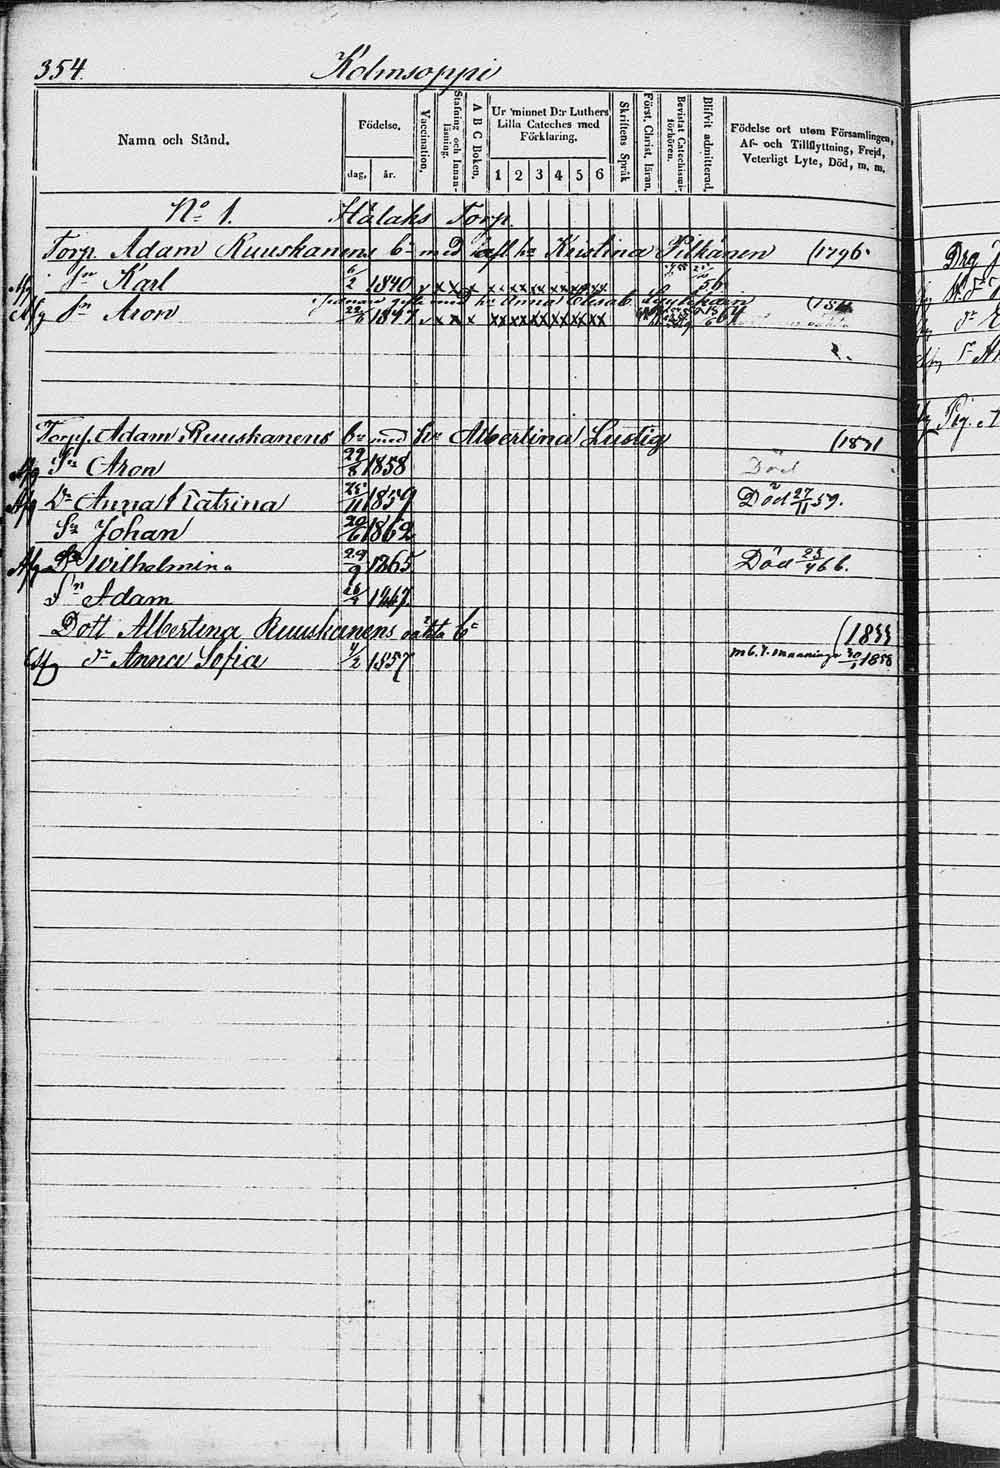 354. Kolmsoppi
Namn och Stånd.
Födelse,
dag, år.
Vaccination.
Stafning och Innanläsning.
A B C Boken.
Ur minnet D:r Luthers Lilla Cateches med Förklaring.
1 2 3 4 5 6
Skriftens Språk
Först. Christ. läran.
Bevistat Catechismiförhören.
Blifvit admitterad.
Födelse ort utom Församlingen, Af- och Tillflyttning, Frejd, Veterligt Lyte, Död, m. m.
No 1. Hålaks Torp.
Torp. Adam Ruuskanens bn med afl. ho Kristina Pitkänen (1796
Sn Karl 6/2 1840 56
Sn Aron 1847 64
Torpp. Adam Ruuskanens bn med ho Albertina Lustig (1831
Afg Sn Aron 22/8 1858 Död
Afg Dr Anna Katrina 25/11 1859 Död 27/11 59.
Sn Johan 20/6 1862
Afg Wilhelmina 29/9 1865 Död 23/4 66.
Sn Adam 1867
Dott Albertina Ruuskanens oäkta bn (1833
Afg dr Anna Sofia 4/2 1857 30/1 1858